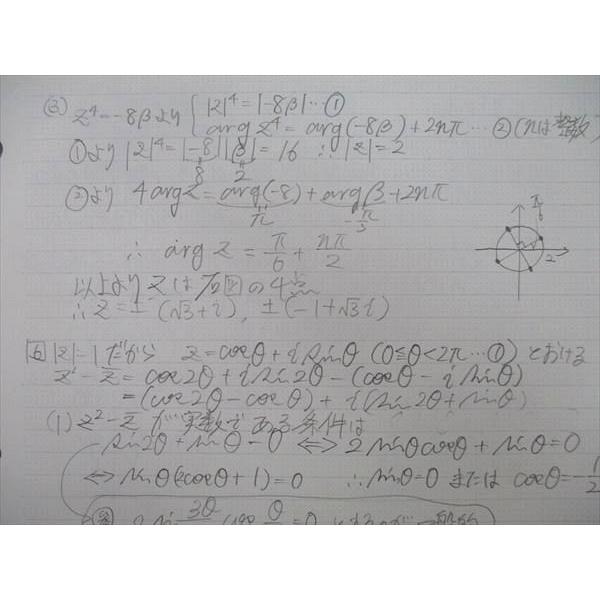 (3) z⁴=-8βより { |z|⁴=|-8β|…①
arg z⁴=arg(-8β)+2nπ…②(nは整数)
①より |z|⁴=|-8||β|=16 ∴|z|=2
8 2
②より 4argz=arg(-8)+argβ+2nπ
π -π/3
∴ arg z = π/6 + nπ/2
π/6
2
以上より zは右図の4点
∴z=±(√3+i), ±(-1+√3i)
6 |z|=1だから z=cosθ+i sinθ (0≦θ<2π…①)とおける
z²-z̄=cos2θ+i sin2θ-(cosθ-i sinθ)
=(cos2θ-cosθ)+i(sin2θ+sinθ)
(1) z²-z̄が実数である条件は
sin2θ+sinθ=0 ⇔ 2sinθcosθ+sinθ=0
⇔ sinθ(2cosθ+1)=0 ∴sinθ=0 または cosθ=-1/2
2 sin 3θ cos θ =0